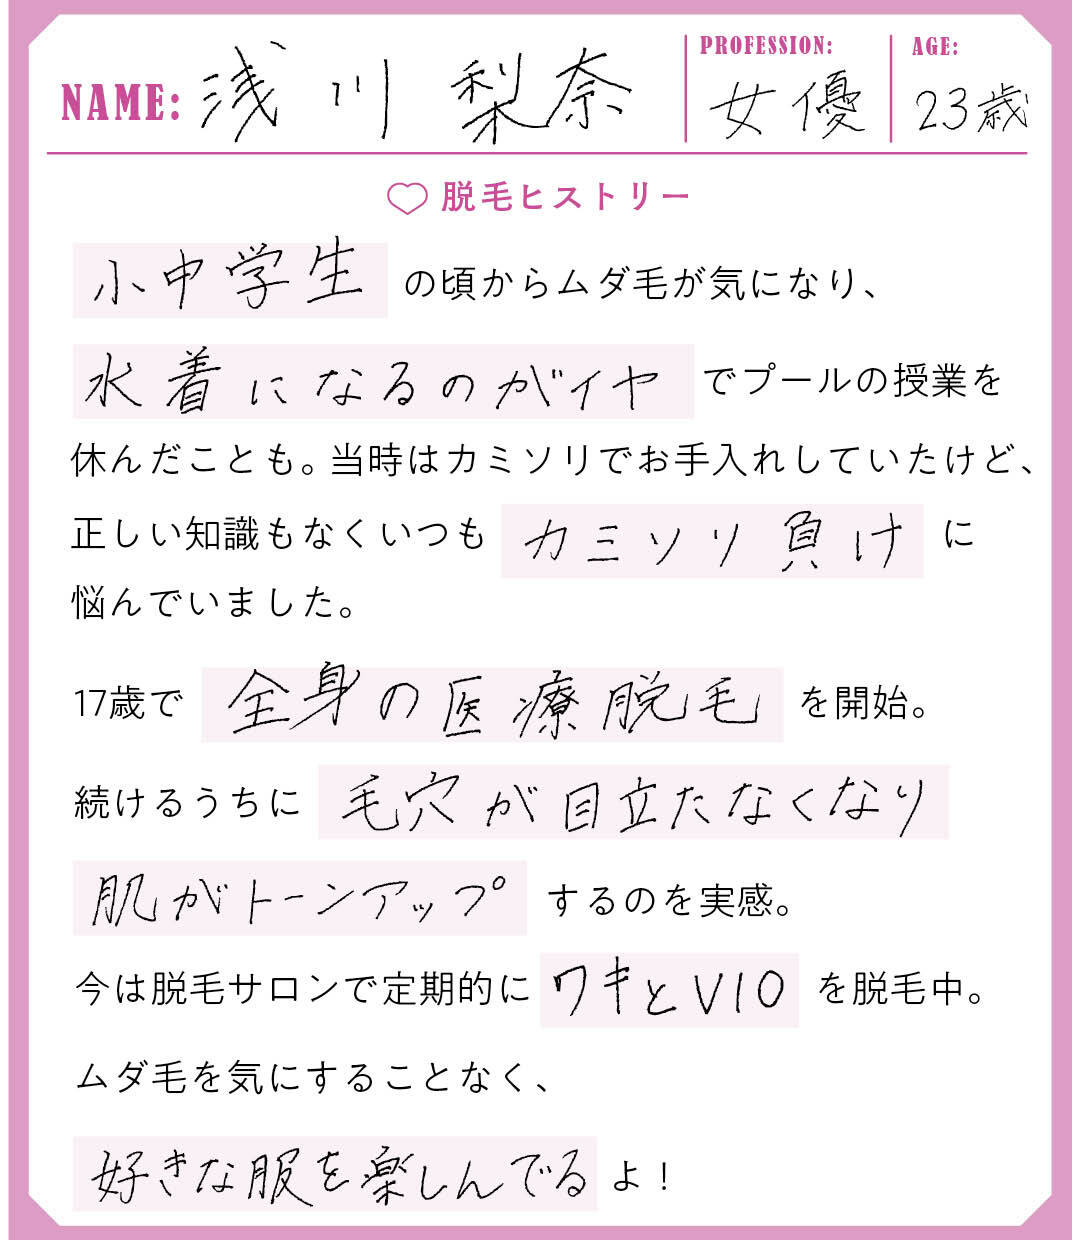 NAME: 浅川 梨奈 PROFESSION: 女優 AGE: 23歳
♡ 脱毛ヒストリー
小中学生 の頃からムダ毛が気になり、
水着になるのがイヤ でプールの授業を
休んだことも。当時はカミソリでお手入れしていたけど、
正しい知識もなくいつも カミソリ負け に
悩んでいました。
17歳で 全身の医療脱毛 を開始。
続けるうちに 毛穴が目立たなくなり
肌がトーンアップ するのを実感。
今は脱毛サロンで定期的に ワキとVIO を脱毛中。
ムダ毛を気にすることなく、
好きな服を楽しんでる よ！